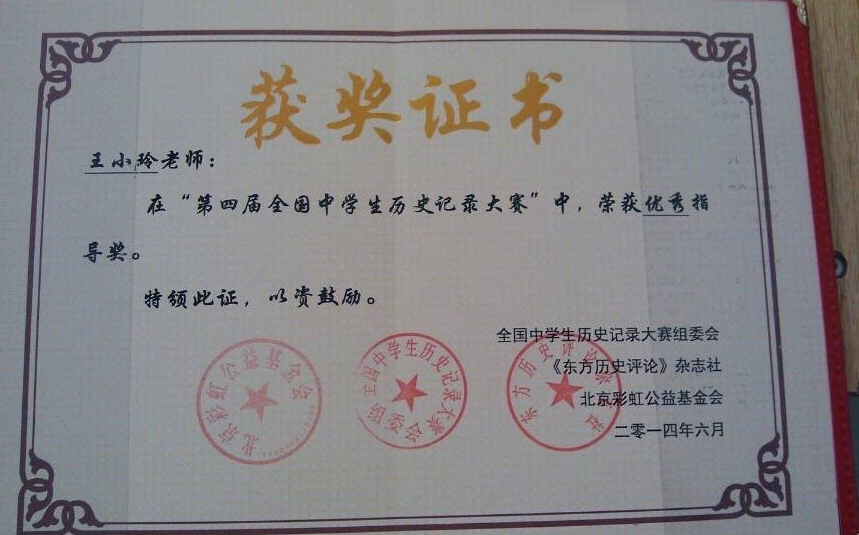 获奖证书
王小玲老师：
在“第四届全国中学生历史记录大赛”中，荣获优秀指
导奖。
特颁此证，以资鼓励。
全国中学生历史记录大赛组委会
《东方历史评论》杂志社
北京彩虹公益基金会
二零一四年六月
北京彩虹公益基金会
全国中学生历史记录大赛
组委会
东方历史评论杂志社